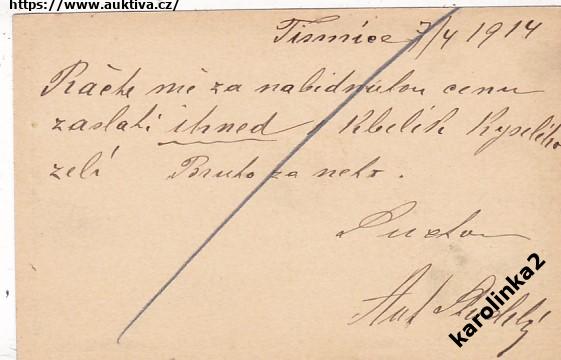 https://www.auktiva.cz/
Tismice 7/4 1914
Ráčte mě za nabídnutou cenu
zaslati ihned 1 Kbelík Kyselého
zelí Bruto za neto.
Ant
karolinka2